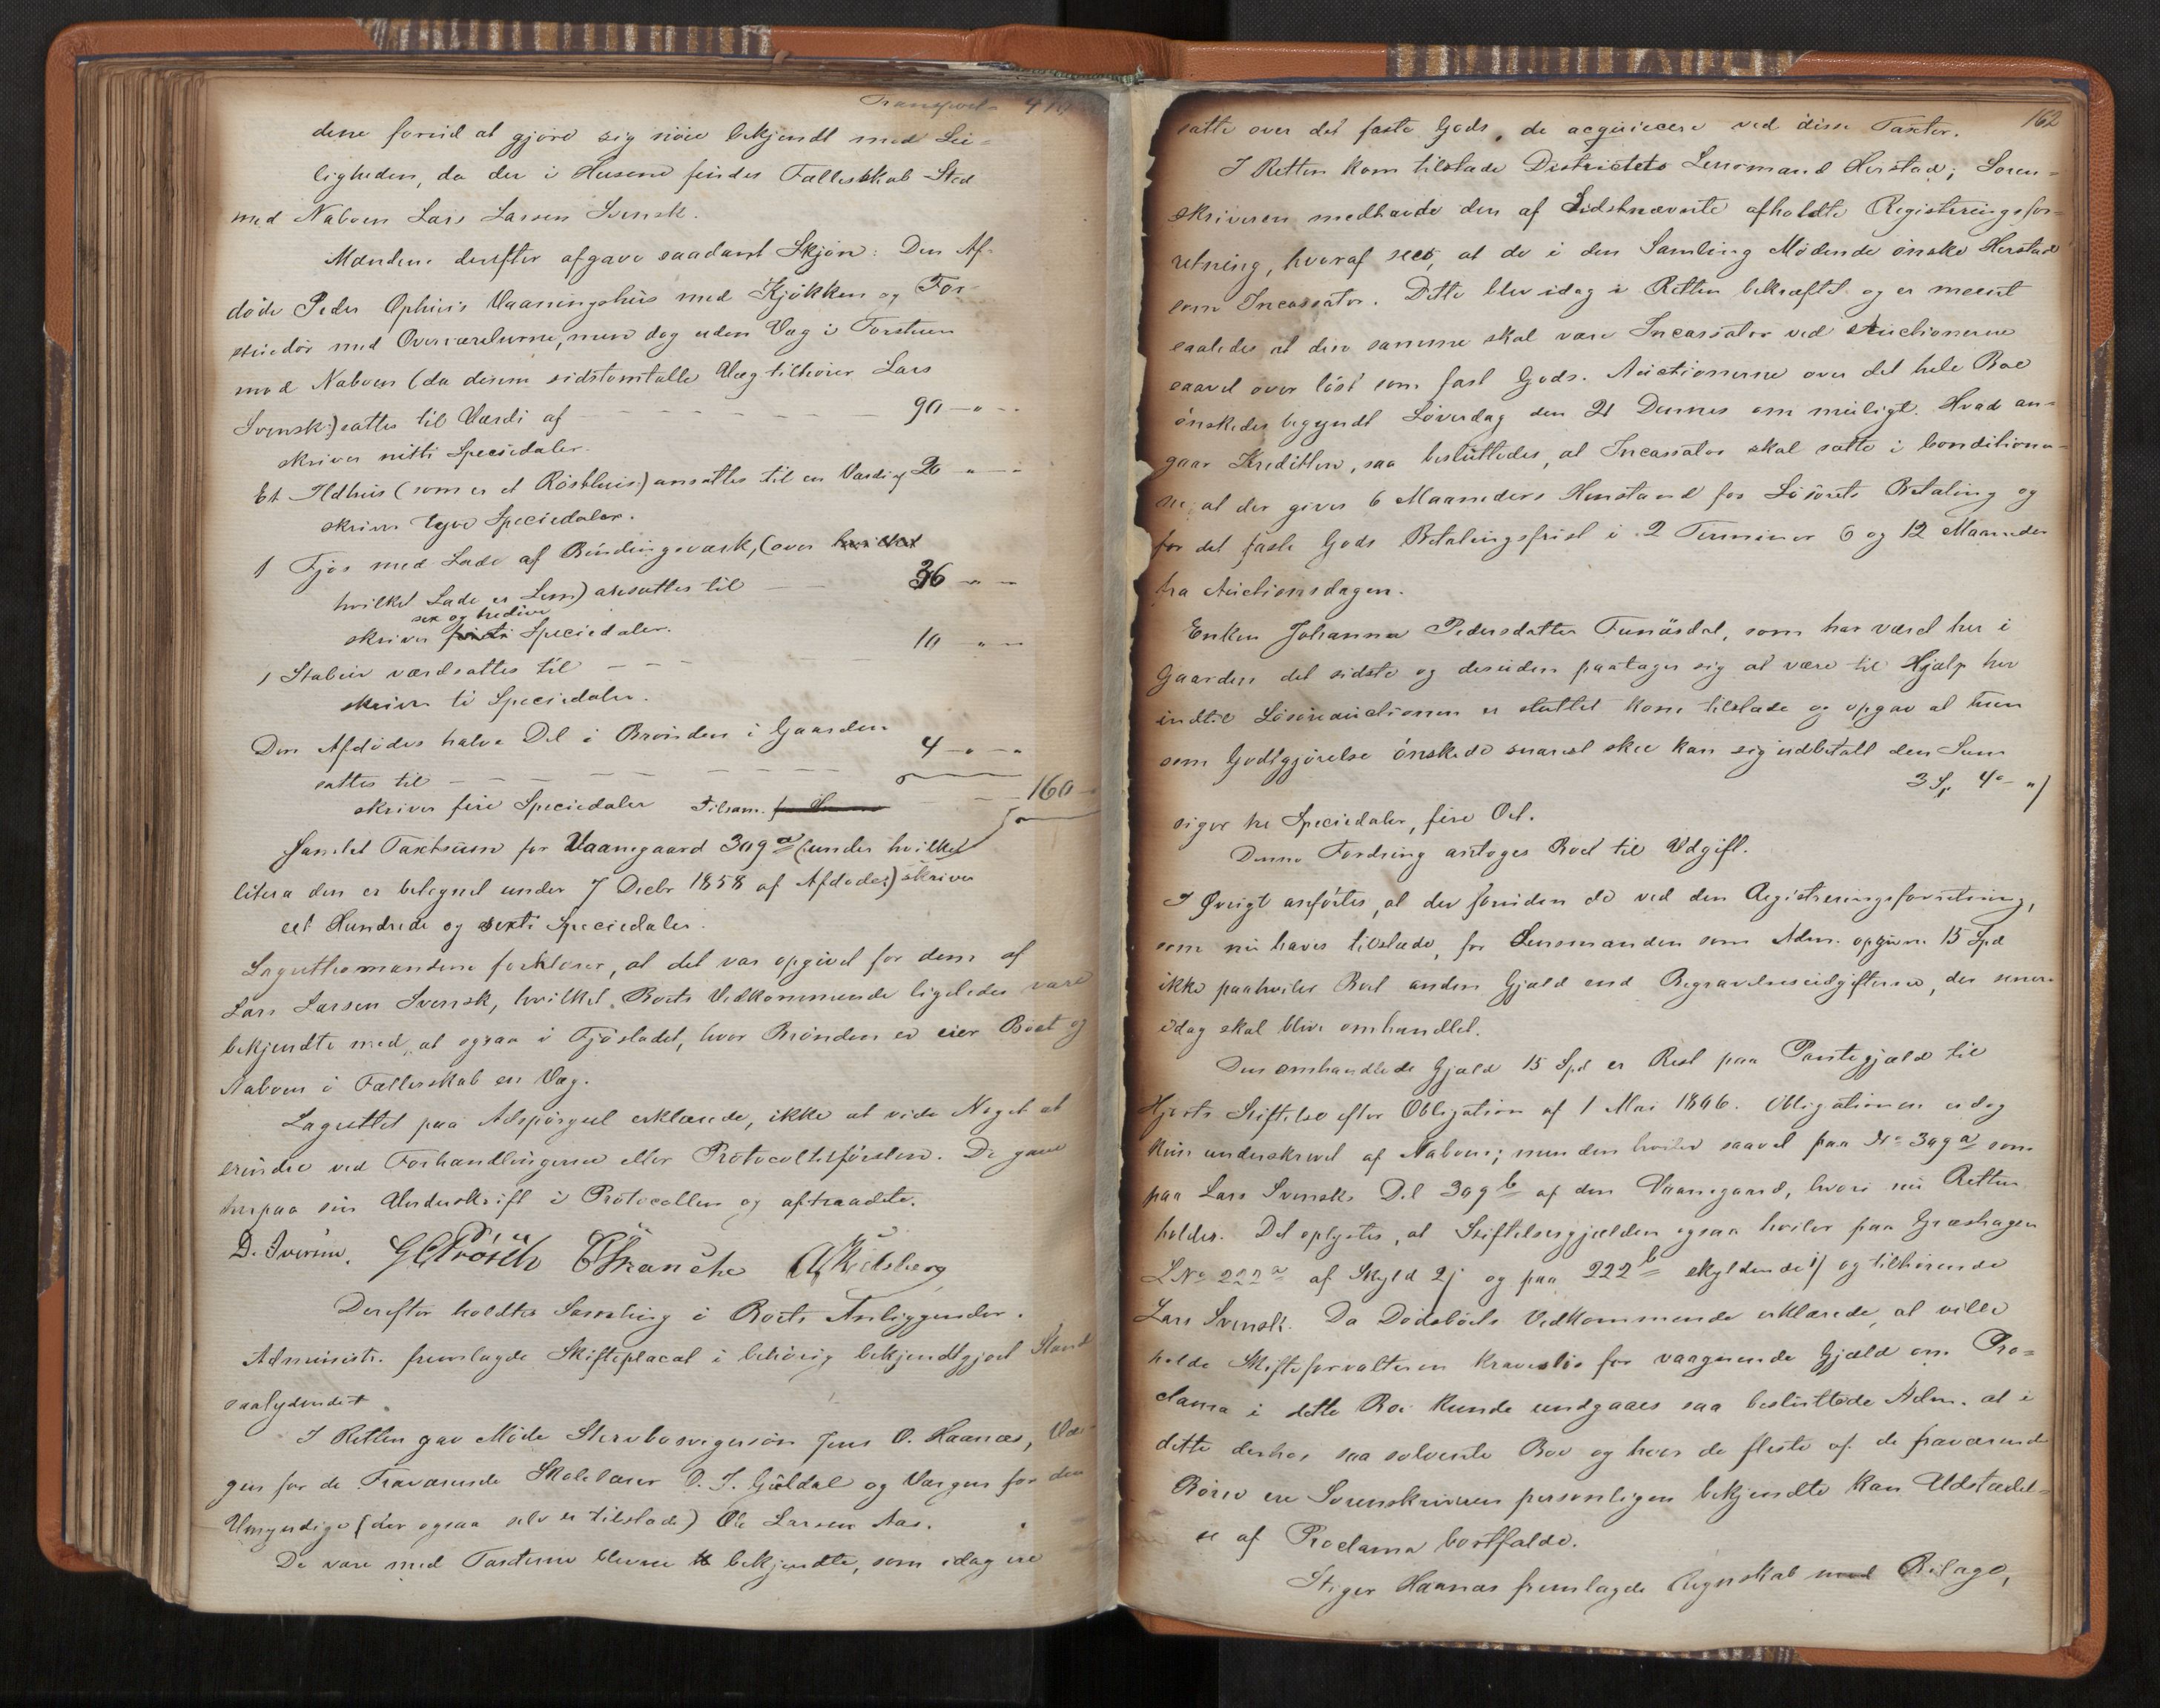 Transport
dene forud at gjøre sig nöie bekjendt med Lei-
ligheden, da der i Husene findes Fælleskab Sted
med Naboen Lars Larsen Svensk.
Mændene derefter afgave saadant Skjøn: Den Af-
döde Peder Ophuus Vaaningshus med Kjökken og For-
stuedör med Overværelserne, men dog uden Væg i Forstuen
mod Naboen (da denne sidstomtalte Væg tilhörer Lars
Svensk) sattes til Værdi af - - - 90 - " -
skriver nitti Speciedaler.
Et Ildhus (som er et Rösthuus) ansattes til en Værdi af 20 - " -
skriver tyve Speciedaler.
1 Fjös med Lade af Bindingsværk, (over
hvilket Lade er Lem) ansattes til - 36 - " -
sex og tredive
skriver Speciedaler.
1 Stabur værdsattes til - - - 10 " -
skriver ti Speciedaler.
Den Afdödes halve Del i Brönden i Gaarden
sattes til - - - 4 - " - "
skriver fire Speciedaler Tilsam. - 160 -
Samlet Taxtsum for Vaanegaard 309 a (under hvilket
litera den er betegnet under 7 Decbr 1858 af Afdöde) skriver
eet Hundrede og sexti Speciedaler.
Lagrettesmændene forklarer, at det var opgivet for dem af
Lars Larsen Svensk, hvilket Boets Vedkommende ligeledes vare
bekjendte med, at ogsaa i Fjösladet, hvor Brönden er eier Boet og
Naboen i Fælleskab en Væg.
Lagrettet paa Adspörgsel erklærede, ikke at vide Noget at
erindre ved Forhandlingerne eller Protocoltilförslen. De gave
herpaa sin Underskrift i Protocollen og aftraadte.
D. Iversen.
Derefter holdtes Samling i Boets Anliggender.
Administr. fremlagde Skifteplacat i behörig bekjendtgjort Stand
saalydende
I Retten gav Möde Stervbosvigersön Jens O. Haanæs, Vær-
gen for de Fraværende Skolelærer O. J. Guldal og Værgen for den
Umyndige (der ogsaa selv er tilstede) Ole Larsen Aas.
De vare med Taxterne blevne bekjendte, som idag ere
162
satte over det faste Gods, de acquiecere ved disse Taxter.
I Retten kom tilstade Districtets Lensmand Herstad; Soren-
skriveren medhavde den af Sidstnævnte afholdte Registreringsfor-
retning, hvoraf sees, at de i den Samling Mödende önske Herstad
som Incassator. Dette blev idag i Retten bekræftet og er meent
saaledes at den samme skal være Incassator ved Auctionerne
saavel over löst som fast Gods. Auctionerne over det hele Boe
önskedes begyndt Löverdag den 21 Dennes om muligt. Hvad an-
gaar Kreditten, saa besluttedes, at Incassator skal sætte i Conditioner-
ne, at der gives 6 Maaneders Henstand for Lösörets Betaling og
for det faste Gods Betalingsfrist i 2 Terminer 6 og 12 Maaneder
fra Auctionsdagen.
Enken Johanna Pedersdatter Funäsdal, som har været her i
Gaarden det sidste og desuden paatager sig at være til Hjælp her
indtil Lösöreauctionen er sluttet kom tilstade og opgav at hun
som Godtgjörelse önskede snarest skee kan sig udbetalt den Sum
3 Sp 4 - "
siger tre Speciedaler, fire Ort.
Denne Fordring antoges Boet til Udgift.
I Øvrigt anförtes, at der foruden de ved den Registreringsforretning,
som nu haves tilstæde, for Lensmanden som Adm. opgivne 15 Spd
ikke paahviler Boet anden Gjæld end Begravelsesudgifterne, der senere
idag skal blive omhandlet.
Den omhandlede Gjæld 15 Spd er Rest paa Pantegjæld til
Hjorts Stiftelse efter Obligation af 1 Mai 1846. Obligationen er dog
kun underskrevet af Naboen; men den hviler saavel paa No 309 a som
paa Lars Svensks Del 309 b af den Vaanegaard, hvori nu Retten
holdes. Det oplystes, at Stiftelsesgjælden ogsaa hviler paa Græshagen
L No 222 a af Skyld 2 og paa 222 b skyldende og tilhörende
Lars Svensk. Da Dödsboets Vedkommende erklærede, at ville
holde Skifteforvalteren kraveslös for vaagnende Gjæld om Pro-
clama i dette Boe kunde undgaaes saa besluttede Adm. at i
dette derhos saa solvente Boe og hvor de fleste af de fraværende
Börn ere Sorenskriveren personligen bekjendte kan Udstædel-
se af Proclama bortfalde.
Haanæs fremlagde Regnskab med Bilage,